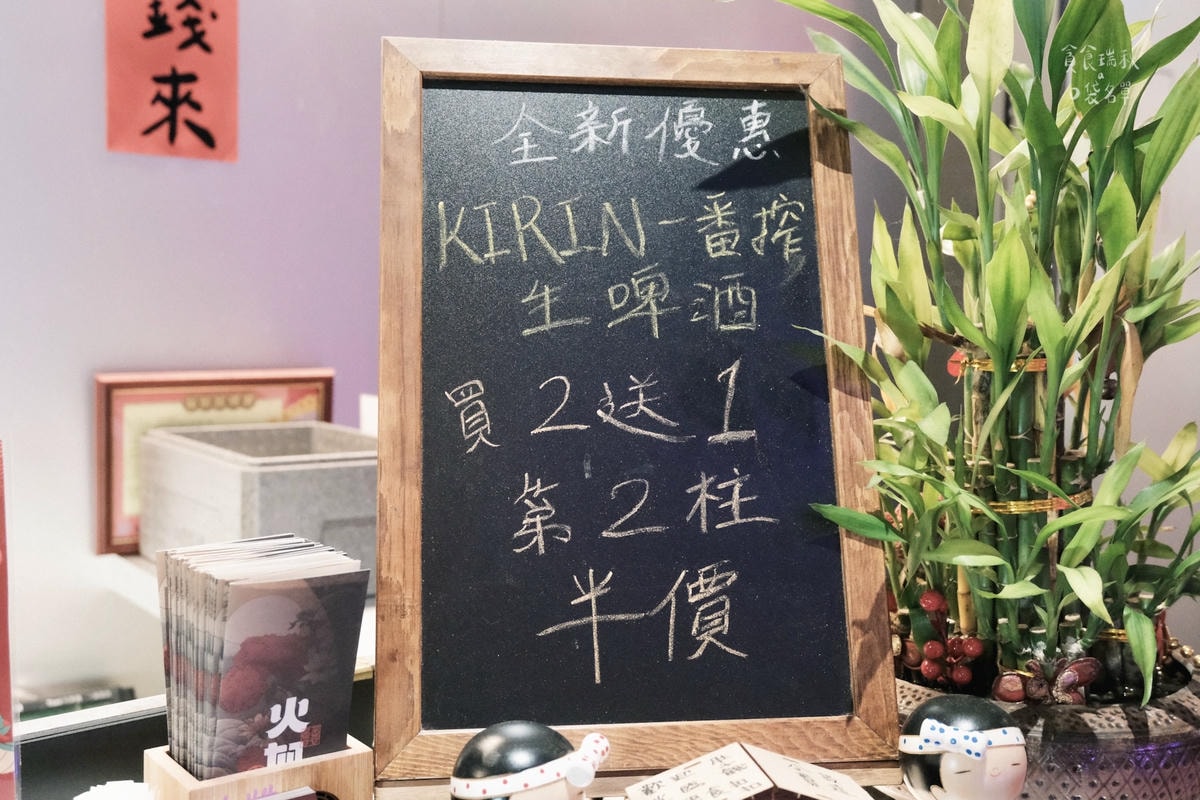 錢
來
全新優惠
KIRIN一番搾
生啤酒
買2送1
第2柱
半價
火
貪食瑞秋
a
口袋名單